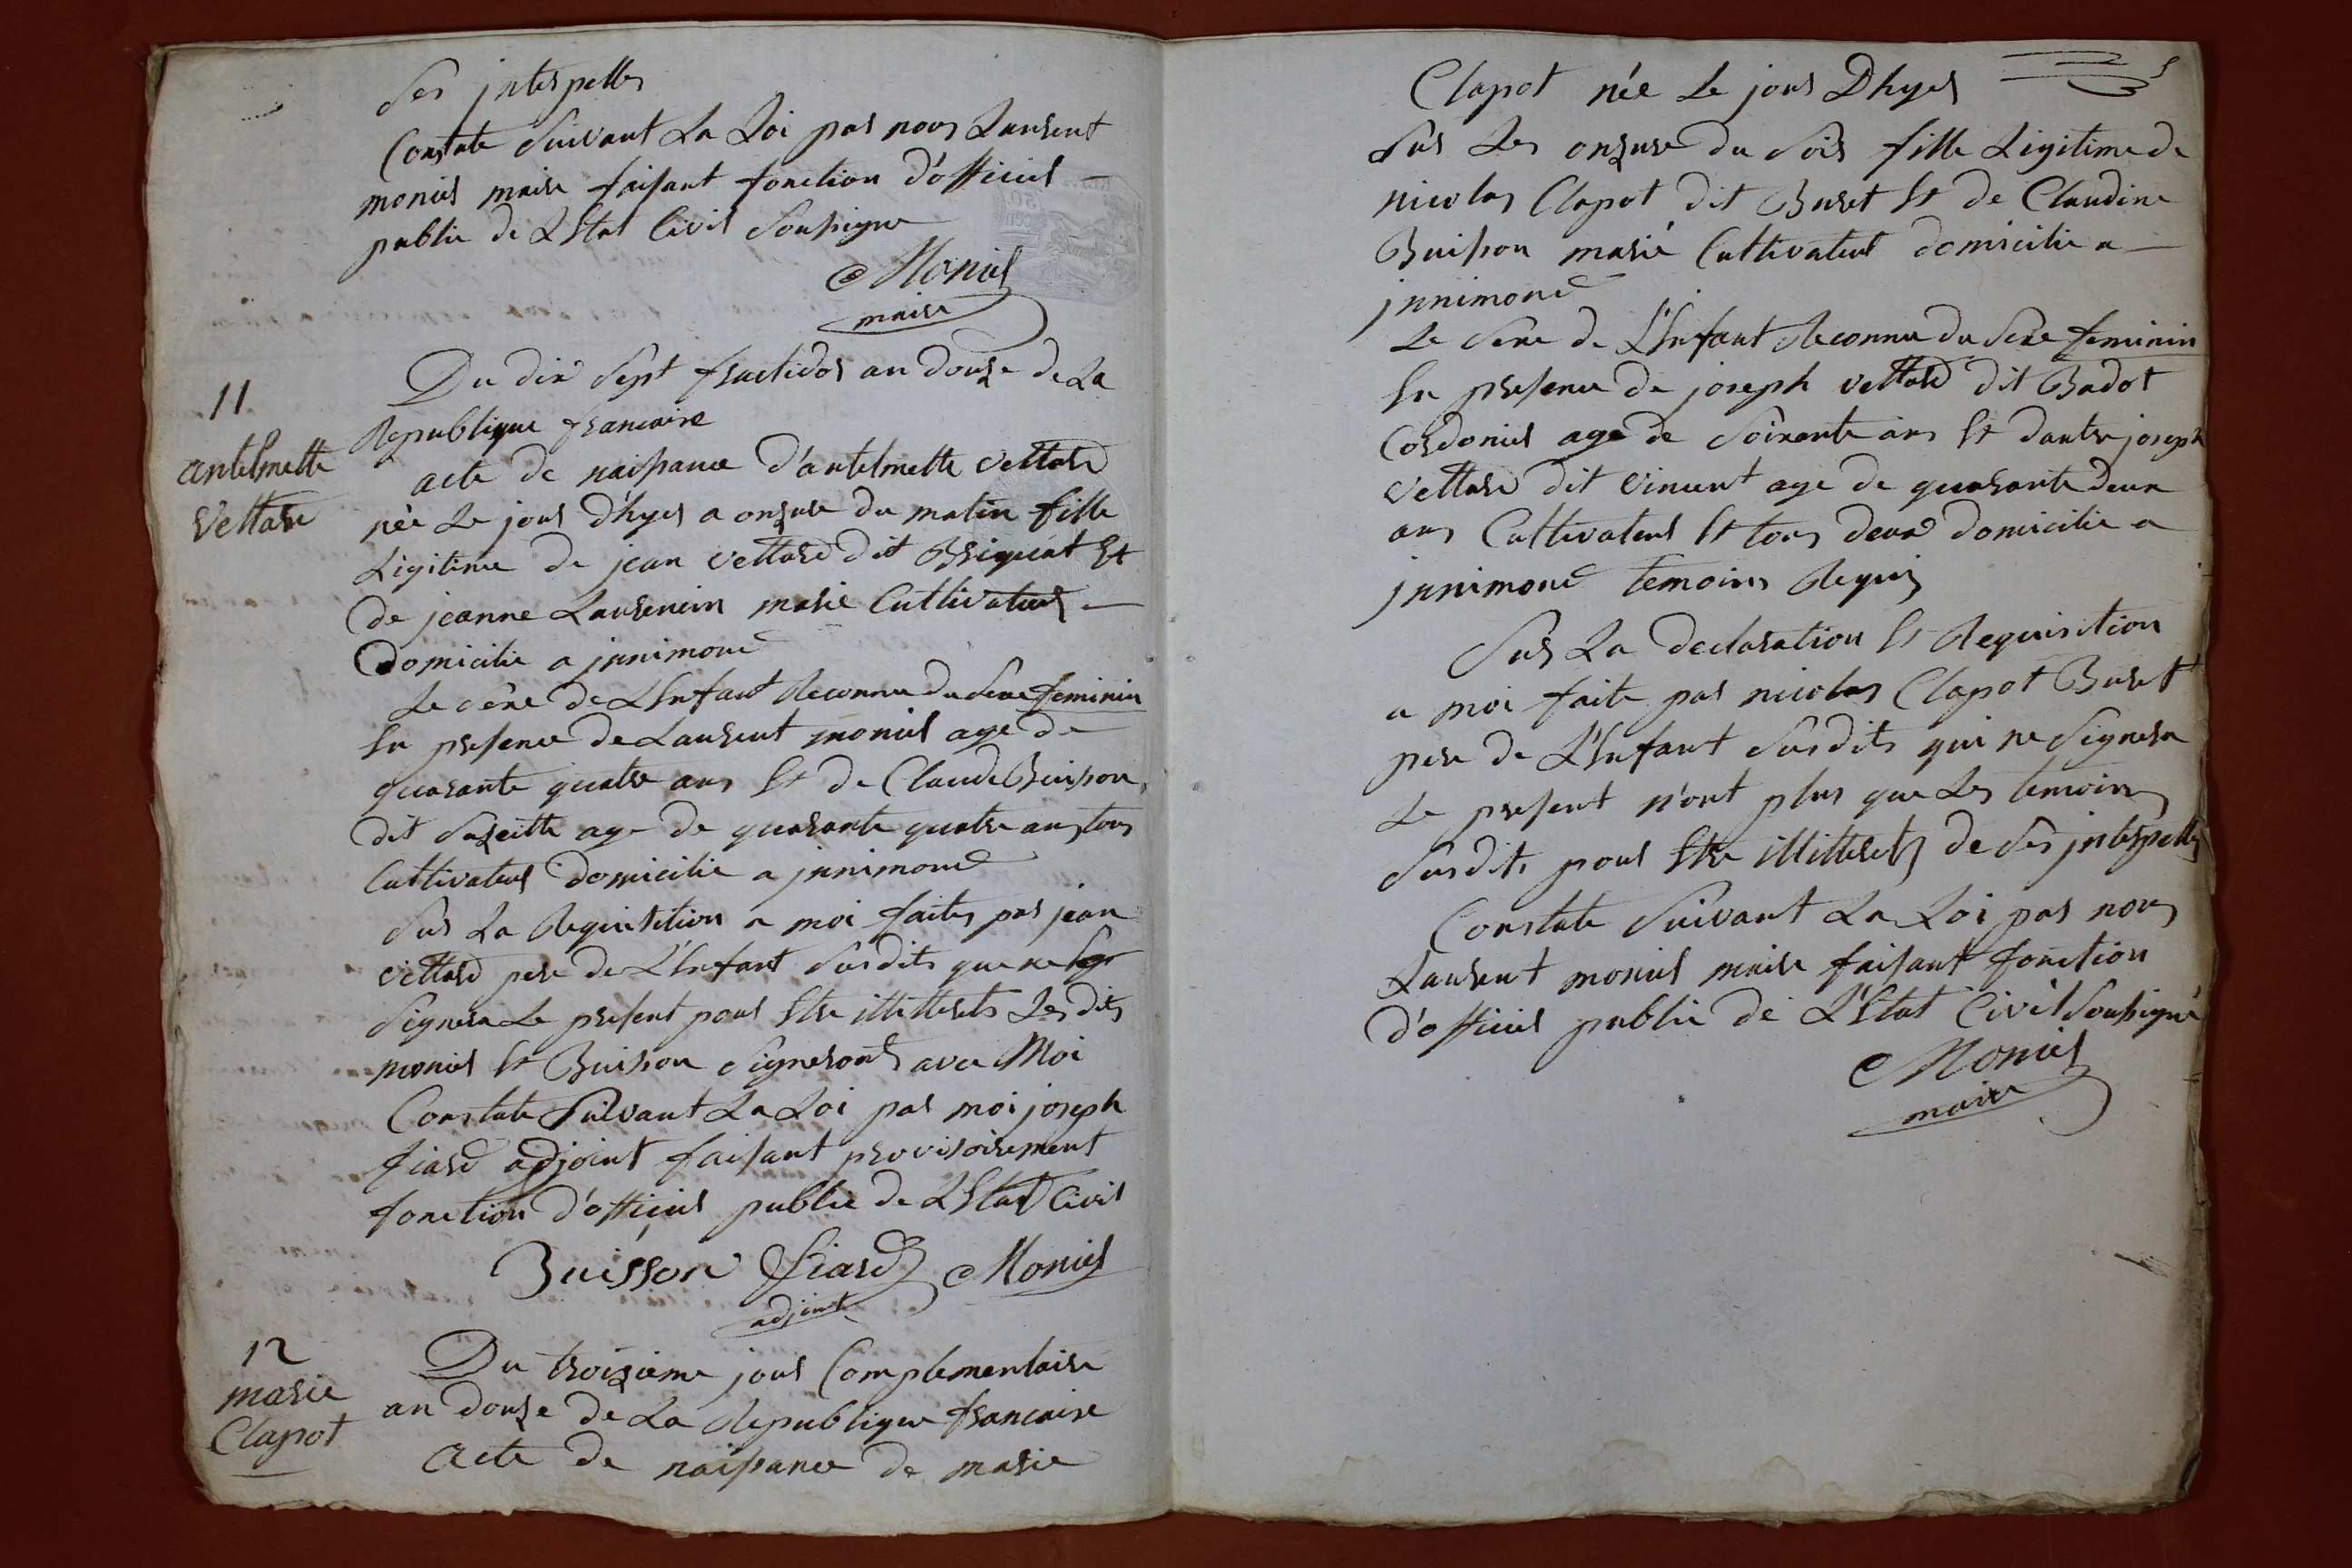 ses interpelles
Constate suivant La Loi par nous Laurent
monier maire faisant fonction d'officier
public de LEtat Civil soussigne
Monier
maire
11
antelmette
vettard
Du dix sept fructidor an douze de La
Republique francaise
acte de naissance d'antelmette vettard
née Le jour d'hyer a onzure du matin fille
Ligitime de jean vettard dit Briquet Et
de jeanne Laurencin marié Cultivateur
Domicilié a jnnimond
Le sexe de LEnfant Reconnu du sexe feminin
En presence de Laurent monier age de
quarante quatre ans Et de Claude Buisson
dit age de quarante quatre ans tous
Cultivateur Domicilié a jnnimond
Sur La Requisition a moi faites par jean
vettard pere de L'Enfant susdits que ne
signera Le present pour Etre illitterets Les dits
monier Et Buisson signeronts avec Moi
Constate suivant La Loi par moi joseph
fiard adjoint faisant provisoirement
fonction d'officier public de LEtat Civil
Buisson fiard Monier
adjoint
12
marie
Clapot
Du troizieme jour Complementaire
an douze de La Republique francaise
acte de naissance de marie
Clapot née Le jour Dhyer
sur Les onzure du soir fille Ligitime de
nicolas Clapot dit Buret Et de Claudine
Buisson marié Cultivateur domicilié a
jnnimond
Le sexe de L'Enfant Reconnu du sexe feminin
En presence de joseph vettard dit Badot
Cordonier age de soixante ans Et dautre joseph
vettard dit vincent age de quarante deux
ans Cultivateur Et tous deux domicilié a
jnnimond temoins Requis
Sur La declaration Et Requisition
a moi faite par nicolas Clapot Buret
pere de L'Enfant susdits qui ne signera
Le present n'ont plus que Les temoins
susdits pour Etre illitterets de ses interpelles
Constate suivant La Loi par nous
Laurent monier maire faisant fonction
d'officier public de L'Etat Civil soussigné
Monier
maire